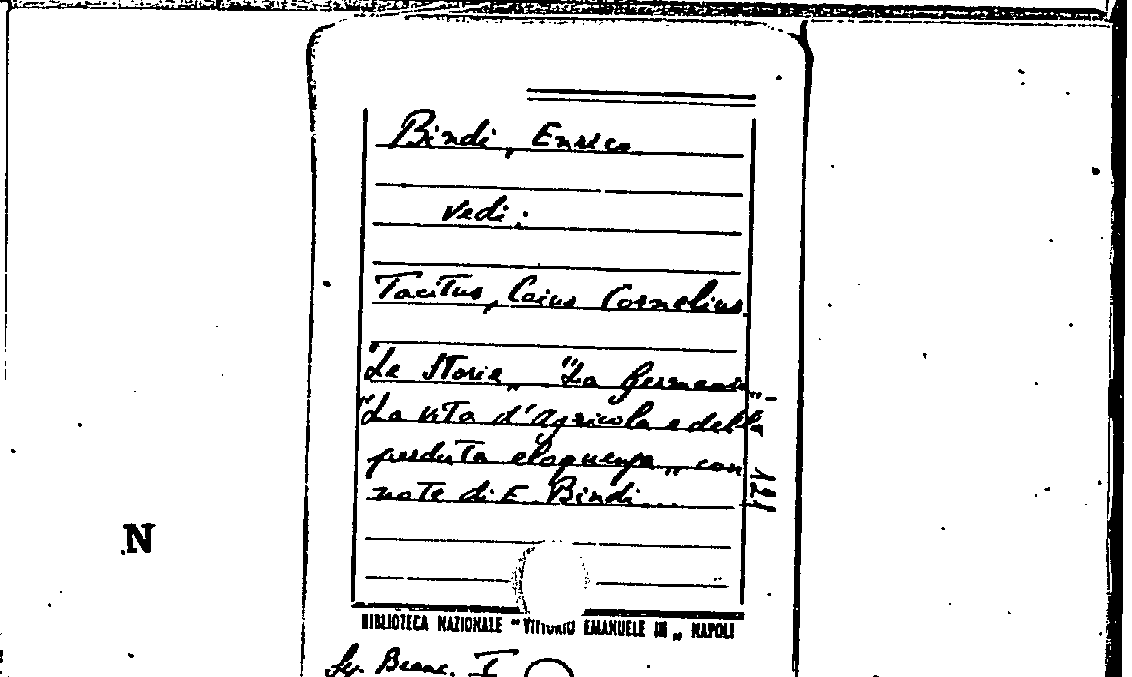 Bindi, Enrico
vedi:
Tacitus, Caius Cornelius
"Le Storie„ "La Germania„,
"La vita d'Agricola e della
perduta eloquenza„ con
note di E. Bindi
N
BIBLIOTECA NAZIONALE "VITTORIO EMANUELE III„ NAPOLI
I